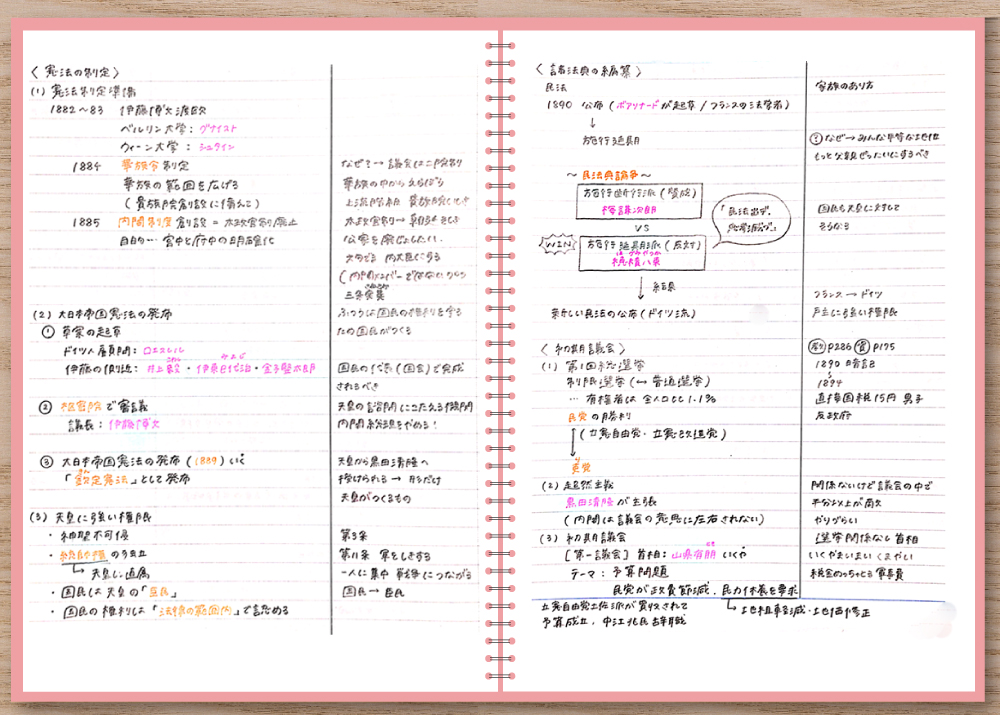 〈 憲法の制定 〉
(1) 憲法制定準備
1882～83 伊藤博文渡欧
ベルリン大学：グナイスト
ウィーン大学：シュタイン
1884 華族令制定
華族の範囲を広げる
(貴族院創設に備えて)
1885 内閣制度創設 = 太政官制廃止
目的… 宮中と府中の明確化
(2) 大日本帝国憲法の発布
① 草案の起草
ドイツ人雇顧問：ロエスレル
伊藤の側近：井上毅・伊東巳代治・金子堅太郎
② 枢密院で審議
議長：伊藤博文
③ 大日本帝国憲法の発布 (1889)
「欽定憲法」として発布
(3) 天皇に強い権限
・神聖不可侵
・統帥権の独立
天皇に直属
・国民は天皇の「臣民」
・国民の権利は「法律の範囲内」で認める
なぜ？→議会は二院制
華族の中からえらばれる
太政官制→
公家を廃止したい
三条実美
ふつうは国民の権利を守る
ための国民がつくる
国民の代表(国会)で完成
されるべき
天皇の諮問にこたえる機関
内閣総理をやめる!
天皇から黒田清隆へ
授けられる → 形だけ
天皇がつくるもの
第3条
第11条 軍をしきする
一人に集中 戦争につながる
国民→臣民
〈 諸法典の編纂 〉
民法
1890 公布 (ボアソナードが起草 / フランスの法学者)
↓
施行延期
～ 民法典論争 ～
施行断行派 (賛成)
梅謙次郎
VS
WIN
施行延期派 (反対)
ほづみやつか
穂積八束
「民法出デゝ
忠孝滅ブ」
↓ 結果
新しい民法の公布 (ドイツ流)
家族のあり方
なぜ→みんな平等な地位
もっと父親ぜったいにするべき
国民も天皇に対して
そうなる
フランス → ドイツ
戸主に強い権限
〈 初期議会 〉
(1) 第1回総選挙
制限選挙 (↔ 普通選挙)
… 有権者は全人口比1.1%
民党の勝利
(立憲自由党・立憲改進党)
吏党
(2) 超然主義
黒田清隆が主張
(内閣は議会の意思に左右されない)
(3) 初期議会
[第一議会] 首相：山県有朋 いくや
テーマ：予算問題
民党が政費節減，民力休養を要求
↳ 地租軽減・地価修正
立憲自由党土佐派が買収されて
予算成立，中江兆民辞職
p286 p175
1890
1894
直接国税15円 男子
反政府
関係ないけど議会の中で
半分以上が民党
やりづらい
選挙関係なし 首相
いくやまいまい
税金のっちゃとる 軍事費